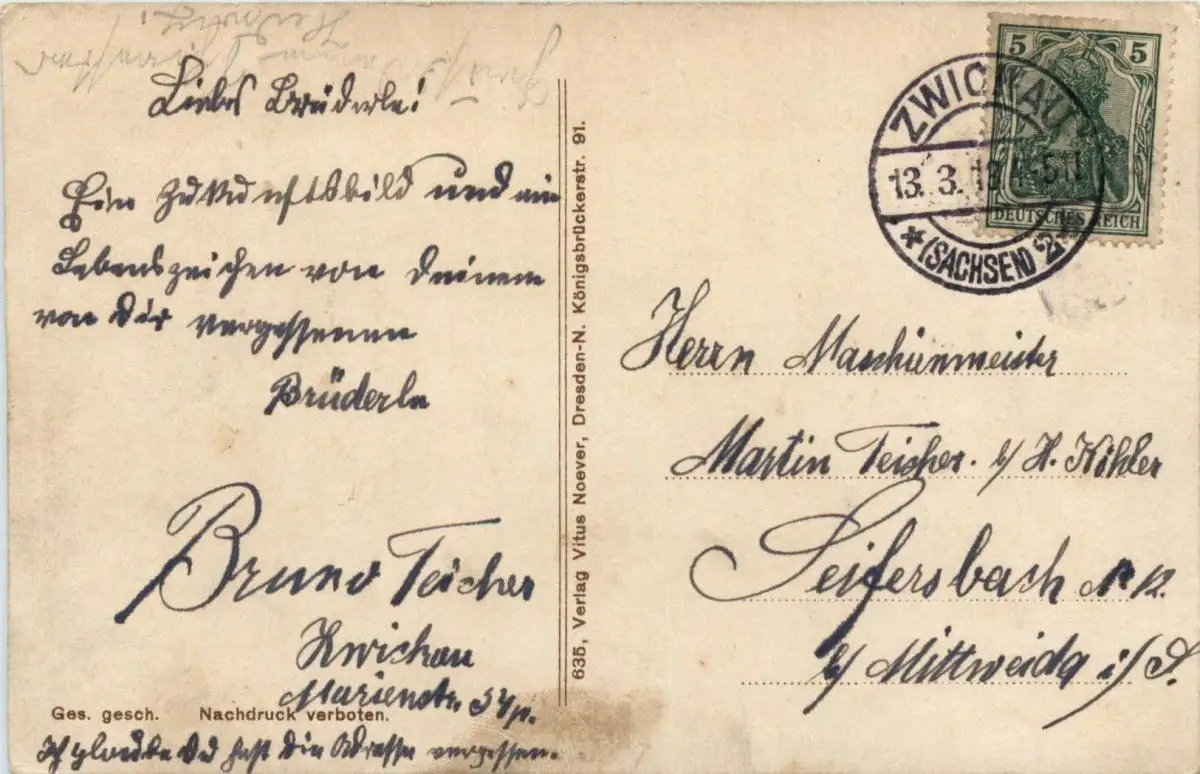 Liebes Brüderle!
Ein Zukunftsbild und ein
Lebenszeichen von Deinem
von Dir vergessenen
Brüderle
Bruno Teicher
Zwickau
Marienstr. 54p.
Ges. gesch. Nachdruck verboten.
Ich glaube Du hast die Adresse vergessen.
635, Verlag Vitus Noever, Dresden-N. Königsbrückerstr. 91.
5 5
DEUTSCHES REICH
ZWICKAU
13. 3.
*(SACHSEN) 2*
Herrn Maschienmeister
Martin Teicher. b/ H. Köhler
Seifersbach
b/ Mittweida i/S.